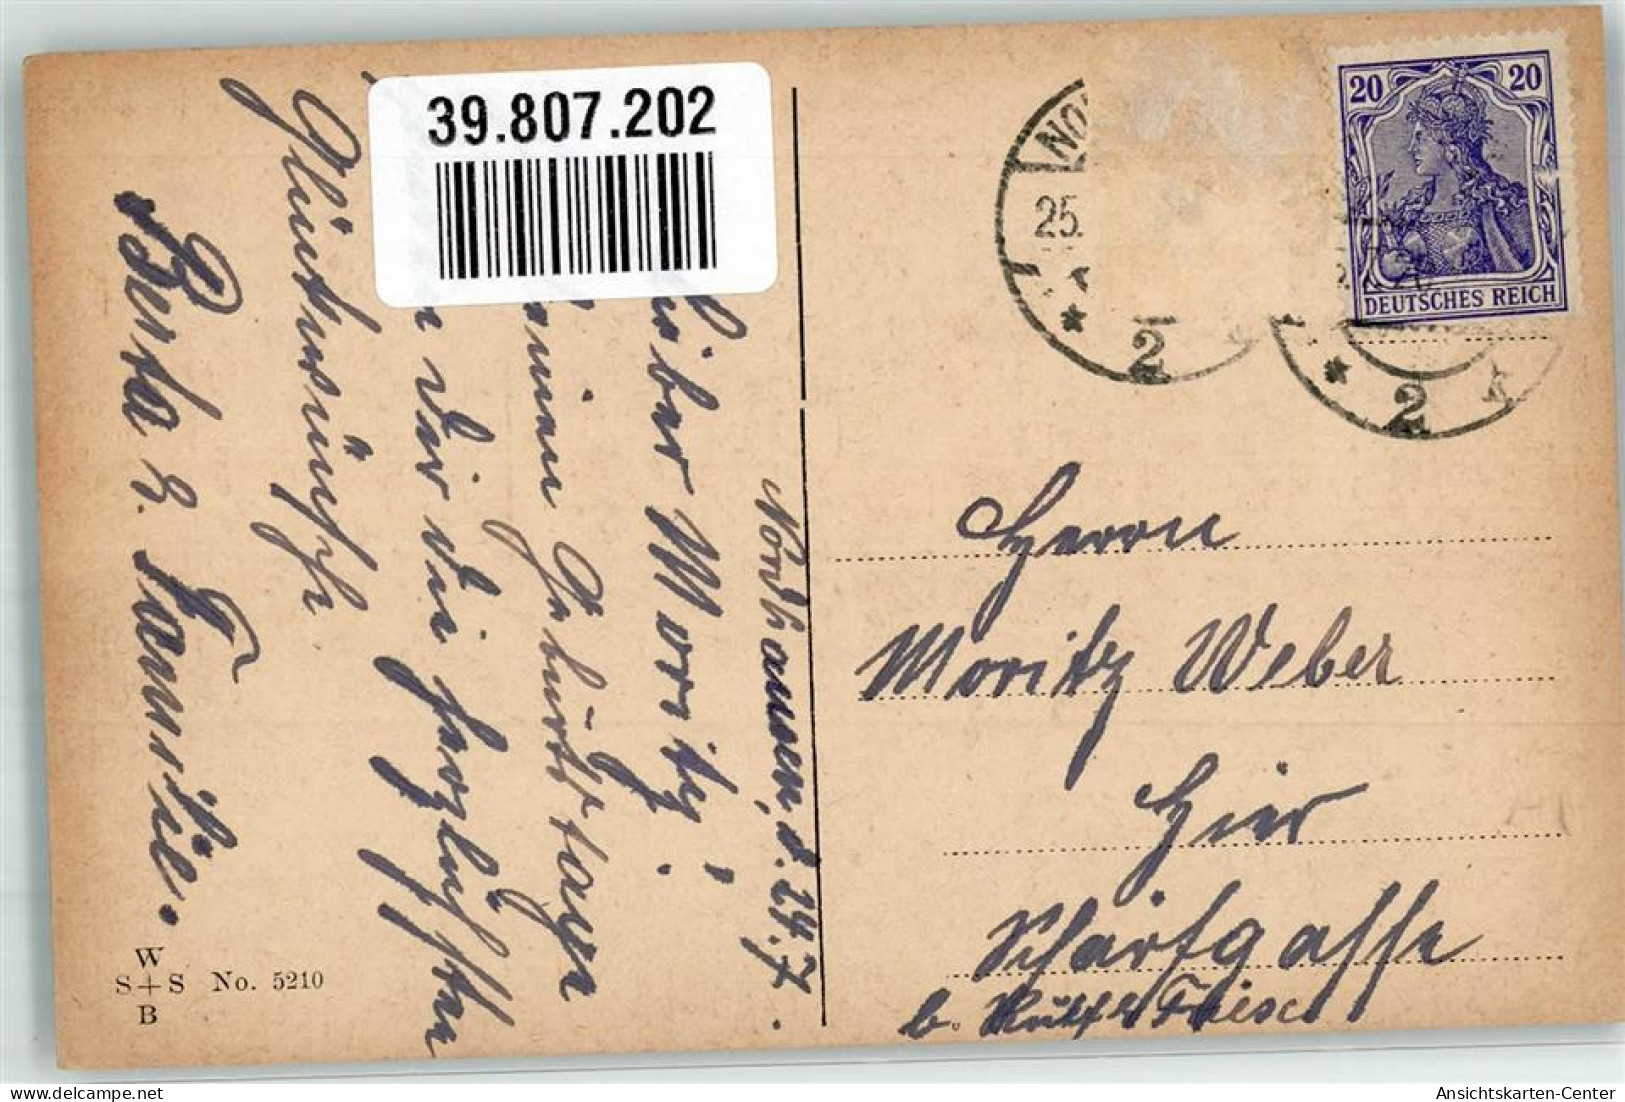 39.807.202
Nordhausen, d. 24.7.
Lieber Moritz!
Deinem Geburtstage
wir die herzlichsten
Glückwünsche
Berta & Familie.
W
S+S No. 5210
B
25.
2
2
20 20
DEUTSCHES REICH
Herrn
Moritz Weber
Hier
Schärfgasse
b.
Ansichtskarten-Center